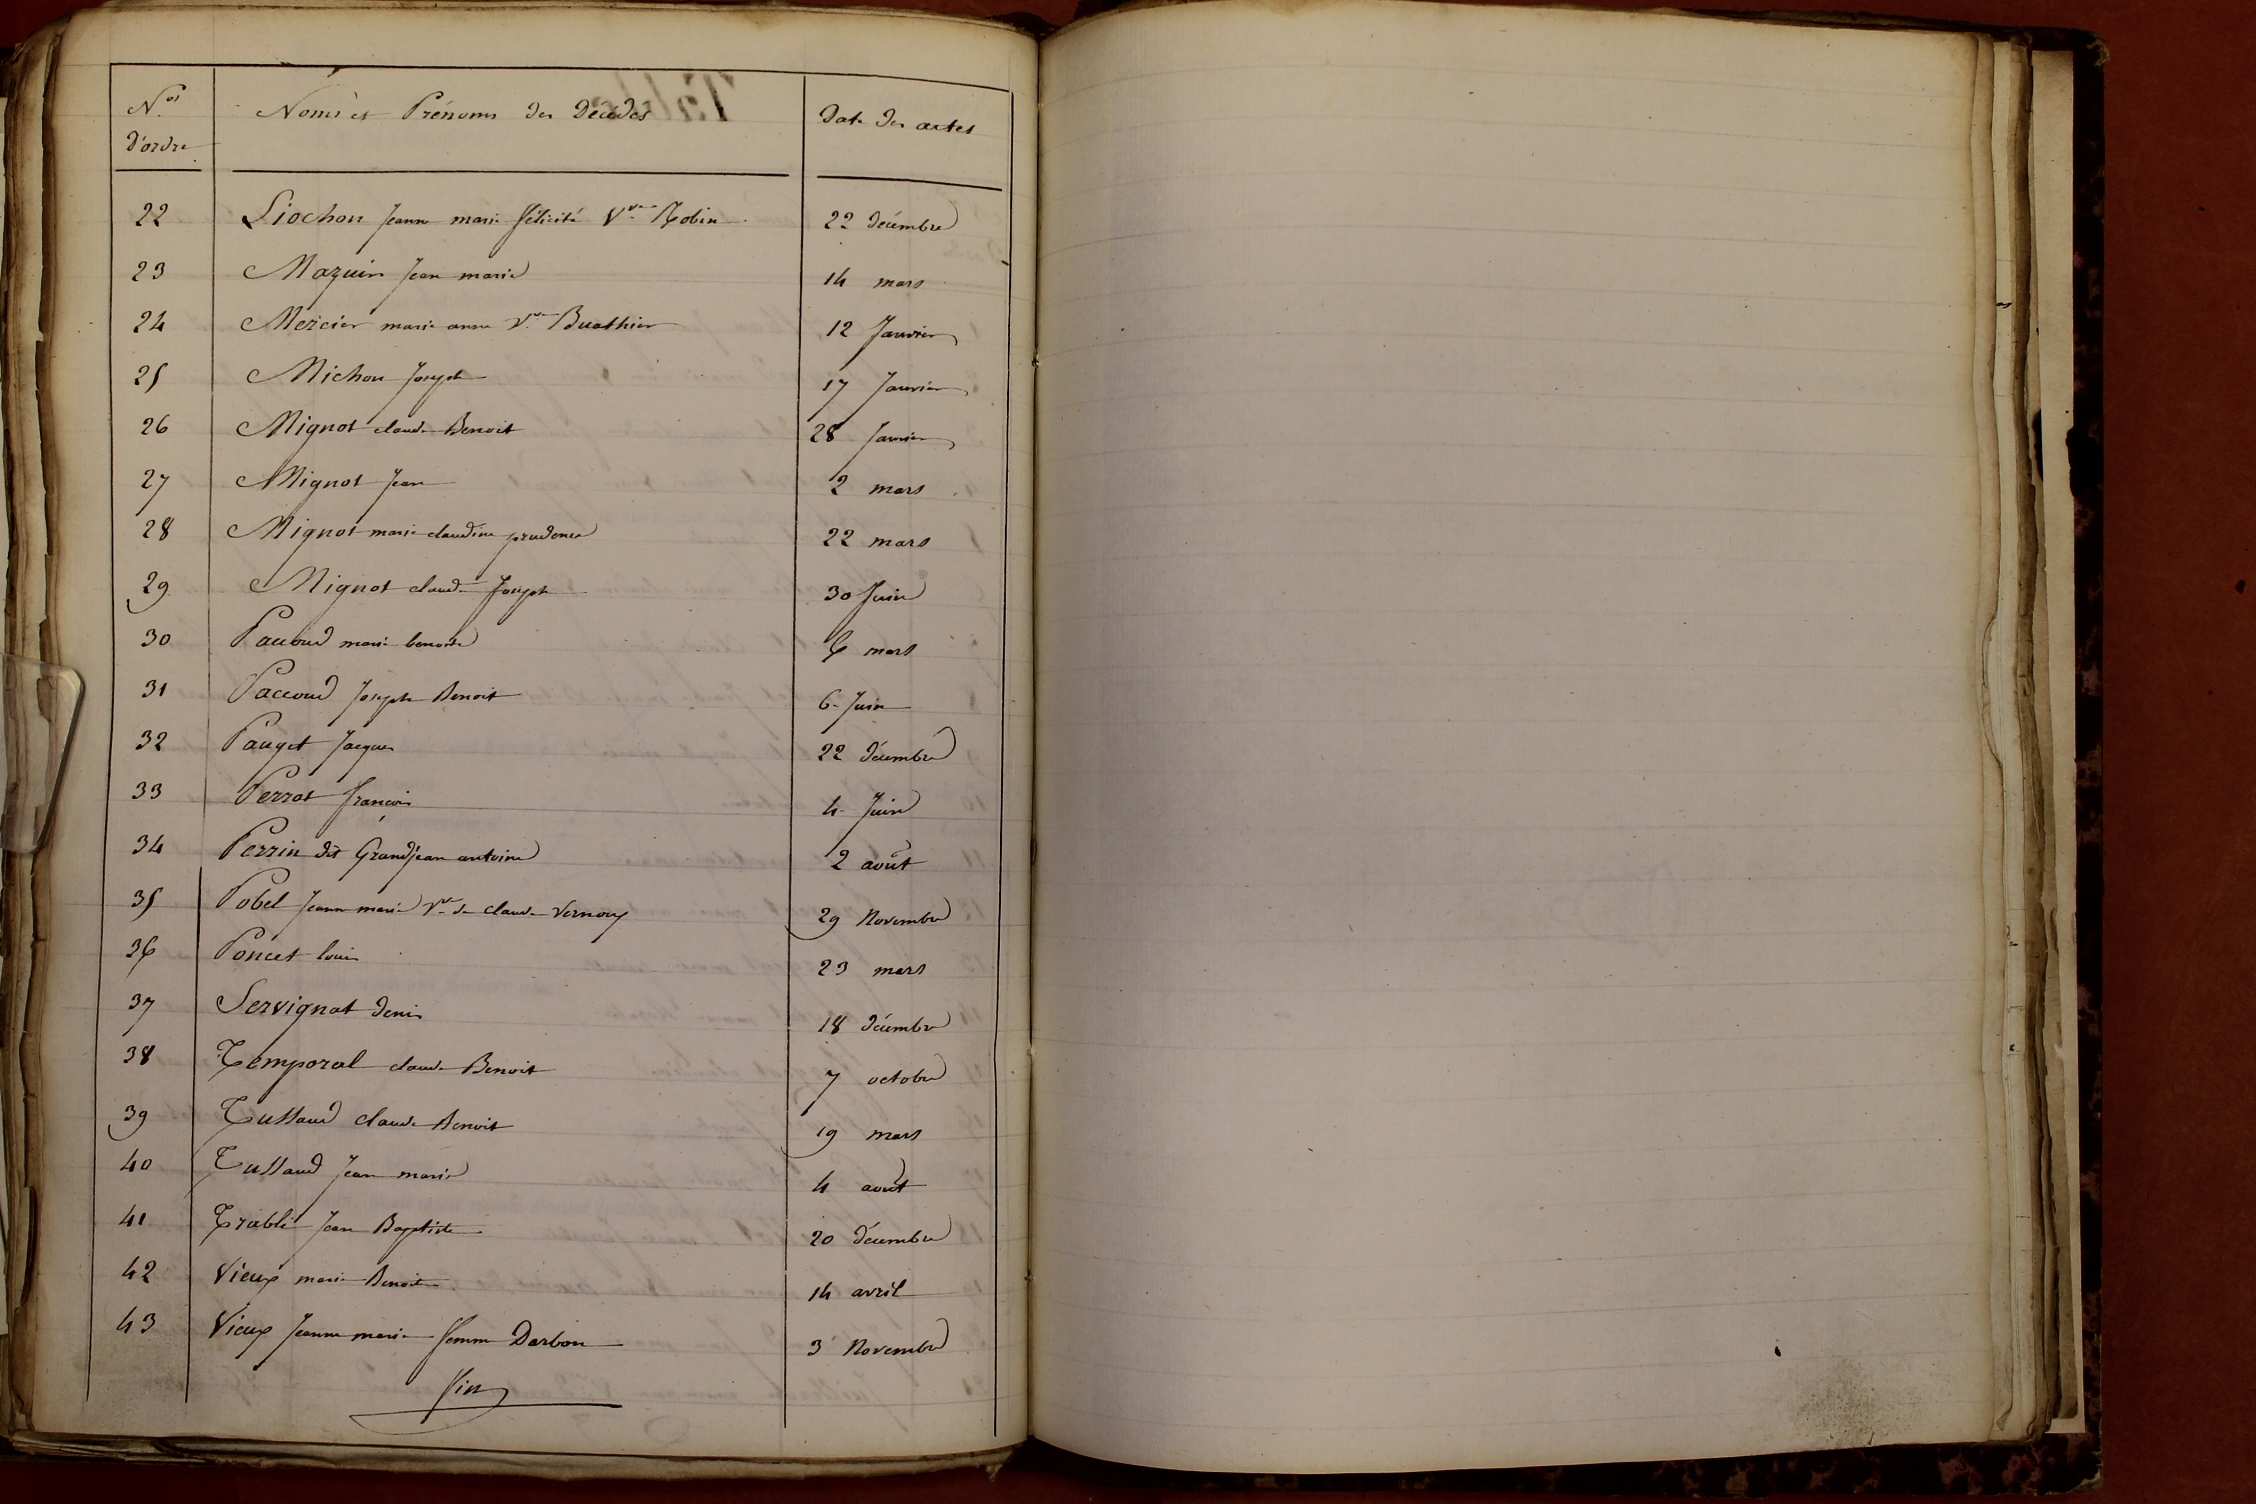 Nos d'ordre Noms et Prénoms des Décédés Date des actes
22 Liochon Jeanne marie félicité Vve Robin 22 décembre
23 Mazuin Jean marie 14 mars
24 Mercier marie anne Vve Buathier 12 Janvier
25 Michon Joseph 17 Janvier
26 Mignot claude Benoit 28 Janvier
27 Mignot Jean 2 mars
28 Mignot marie claudine prudence 22 mars
29 Mignot claude Joseph 30 Juin
30 Paccoud marie benoite 6 mars
31 Paccoud Joseph Benoit 6 Juin
32 Pauget Jacques 22 décembre
33 Perrat françois 4 Juin
34 Perrin dit Grandjean antoine 2 août
35 Pobel Jeanne marie Vve de claude Vernoux 29 Novembre
36 Poncet louis 23 mars
37 Servignat denis 18 décembre
38 Temporal claude Benoit 7 octobre
39 Tussaud claude Benoit 19 mars
40 Tussaud Jean marie 4 août
41 Trablé Jean Baptiste 20 décembre
42 Vieux marie Benoite 14 avril
43 Vieux Jeanne marie femme Darbon 3 Novembre
fin